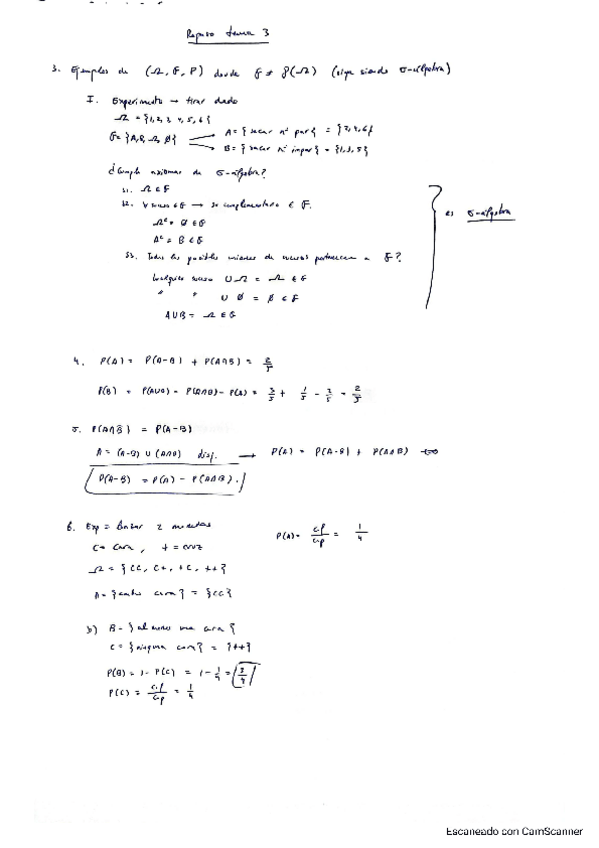 Repaso tema 3
3. Ejemplos de (Ω, F, P) donde F ≠ P(Ω) (siga siendo σ-álgebra)
I. Experimento → tirar dado
Ω = {1,2,3,4,5,6}
F = {A, B, Ω, Ø}
A = {sacar nº par} = {2,4,6}
B = {sacar nº impar} = {1,3,5}
¿Cumple axiomas de σ-álgebra?
S1. Ω ∈ F
S2. ∀ suceso ∈ F → su complementario ∈ F.
Ωᶜ = Ø ∈ F
Aᶜ = B ∈ F
es σ-álgebra
S3. Todas las posibles uniones de sucesos pertenecen a F?
Cualquier suceso ∪ Ω = Ω ∈ F
" " ∪ Ø = Ø ∈ F
A∪B = Ω ∈ F
4. P(A) = P(A-B) + P(A∩B) = 2/5
5. P(A∩B̄) = P(A-B)
A = (A-B) ∪ (A∩B) disj. → P(A) = P(A-B) + P(A∩B)
P(A-B) = P(A) - P(A∩B).
6. Exp = lanzar 2 monedas
C = cara, + = cruz
P(A) = c.f/c.p = 1/4
Ω = {CC, C+, +C, ++}
A = { cara} = {CC}
b) B = {al menos una cara}
C = {ninguna cara} = {++}
P(B) = 1 - P(C) = 1 - 1/4 = 3/4
P(C) = c.f/c.p = 1/4
Escaneado con CamScanner